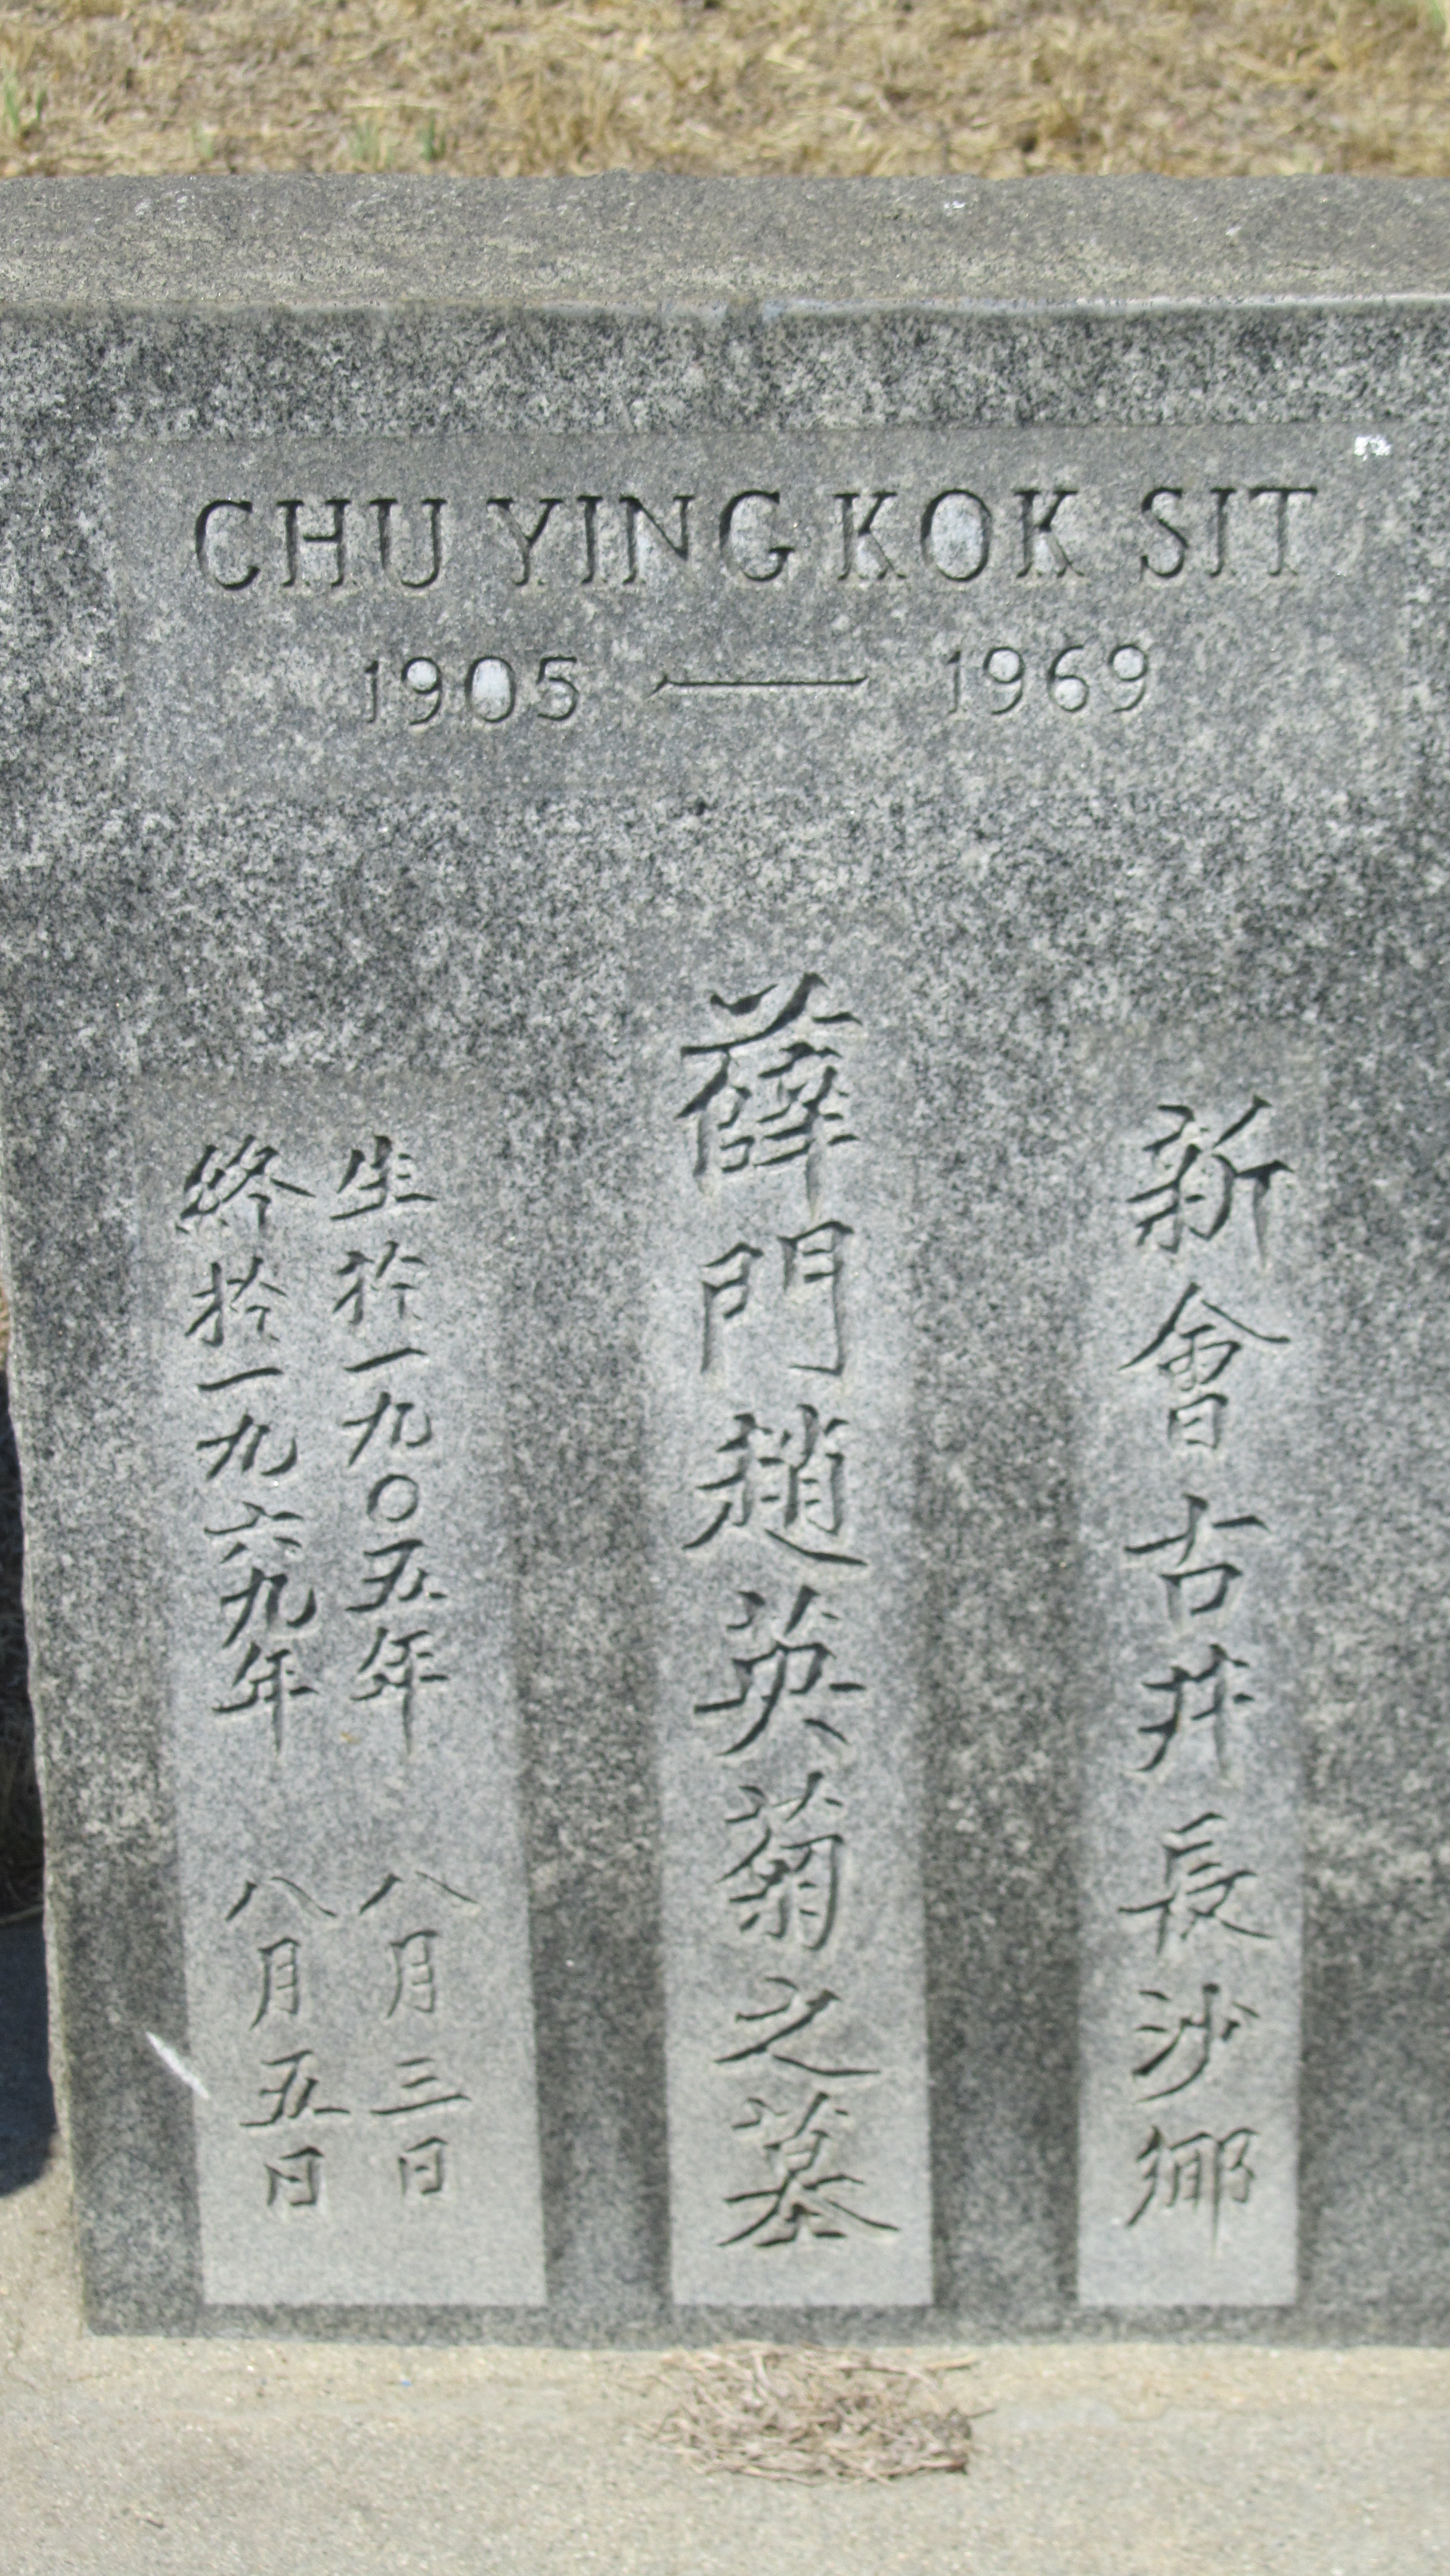 CHU YING KOK SIT
1905 — 1969
新會古井長沙鄉
薛門趙英菊之墓
生於一九〇五年 八月三日
終於一九六九年 八月五日